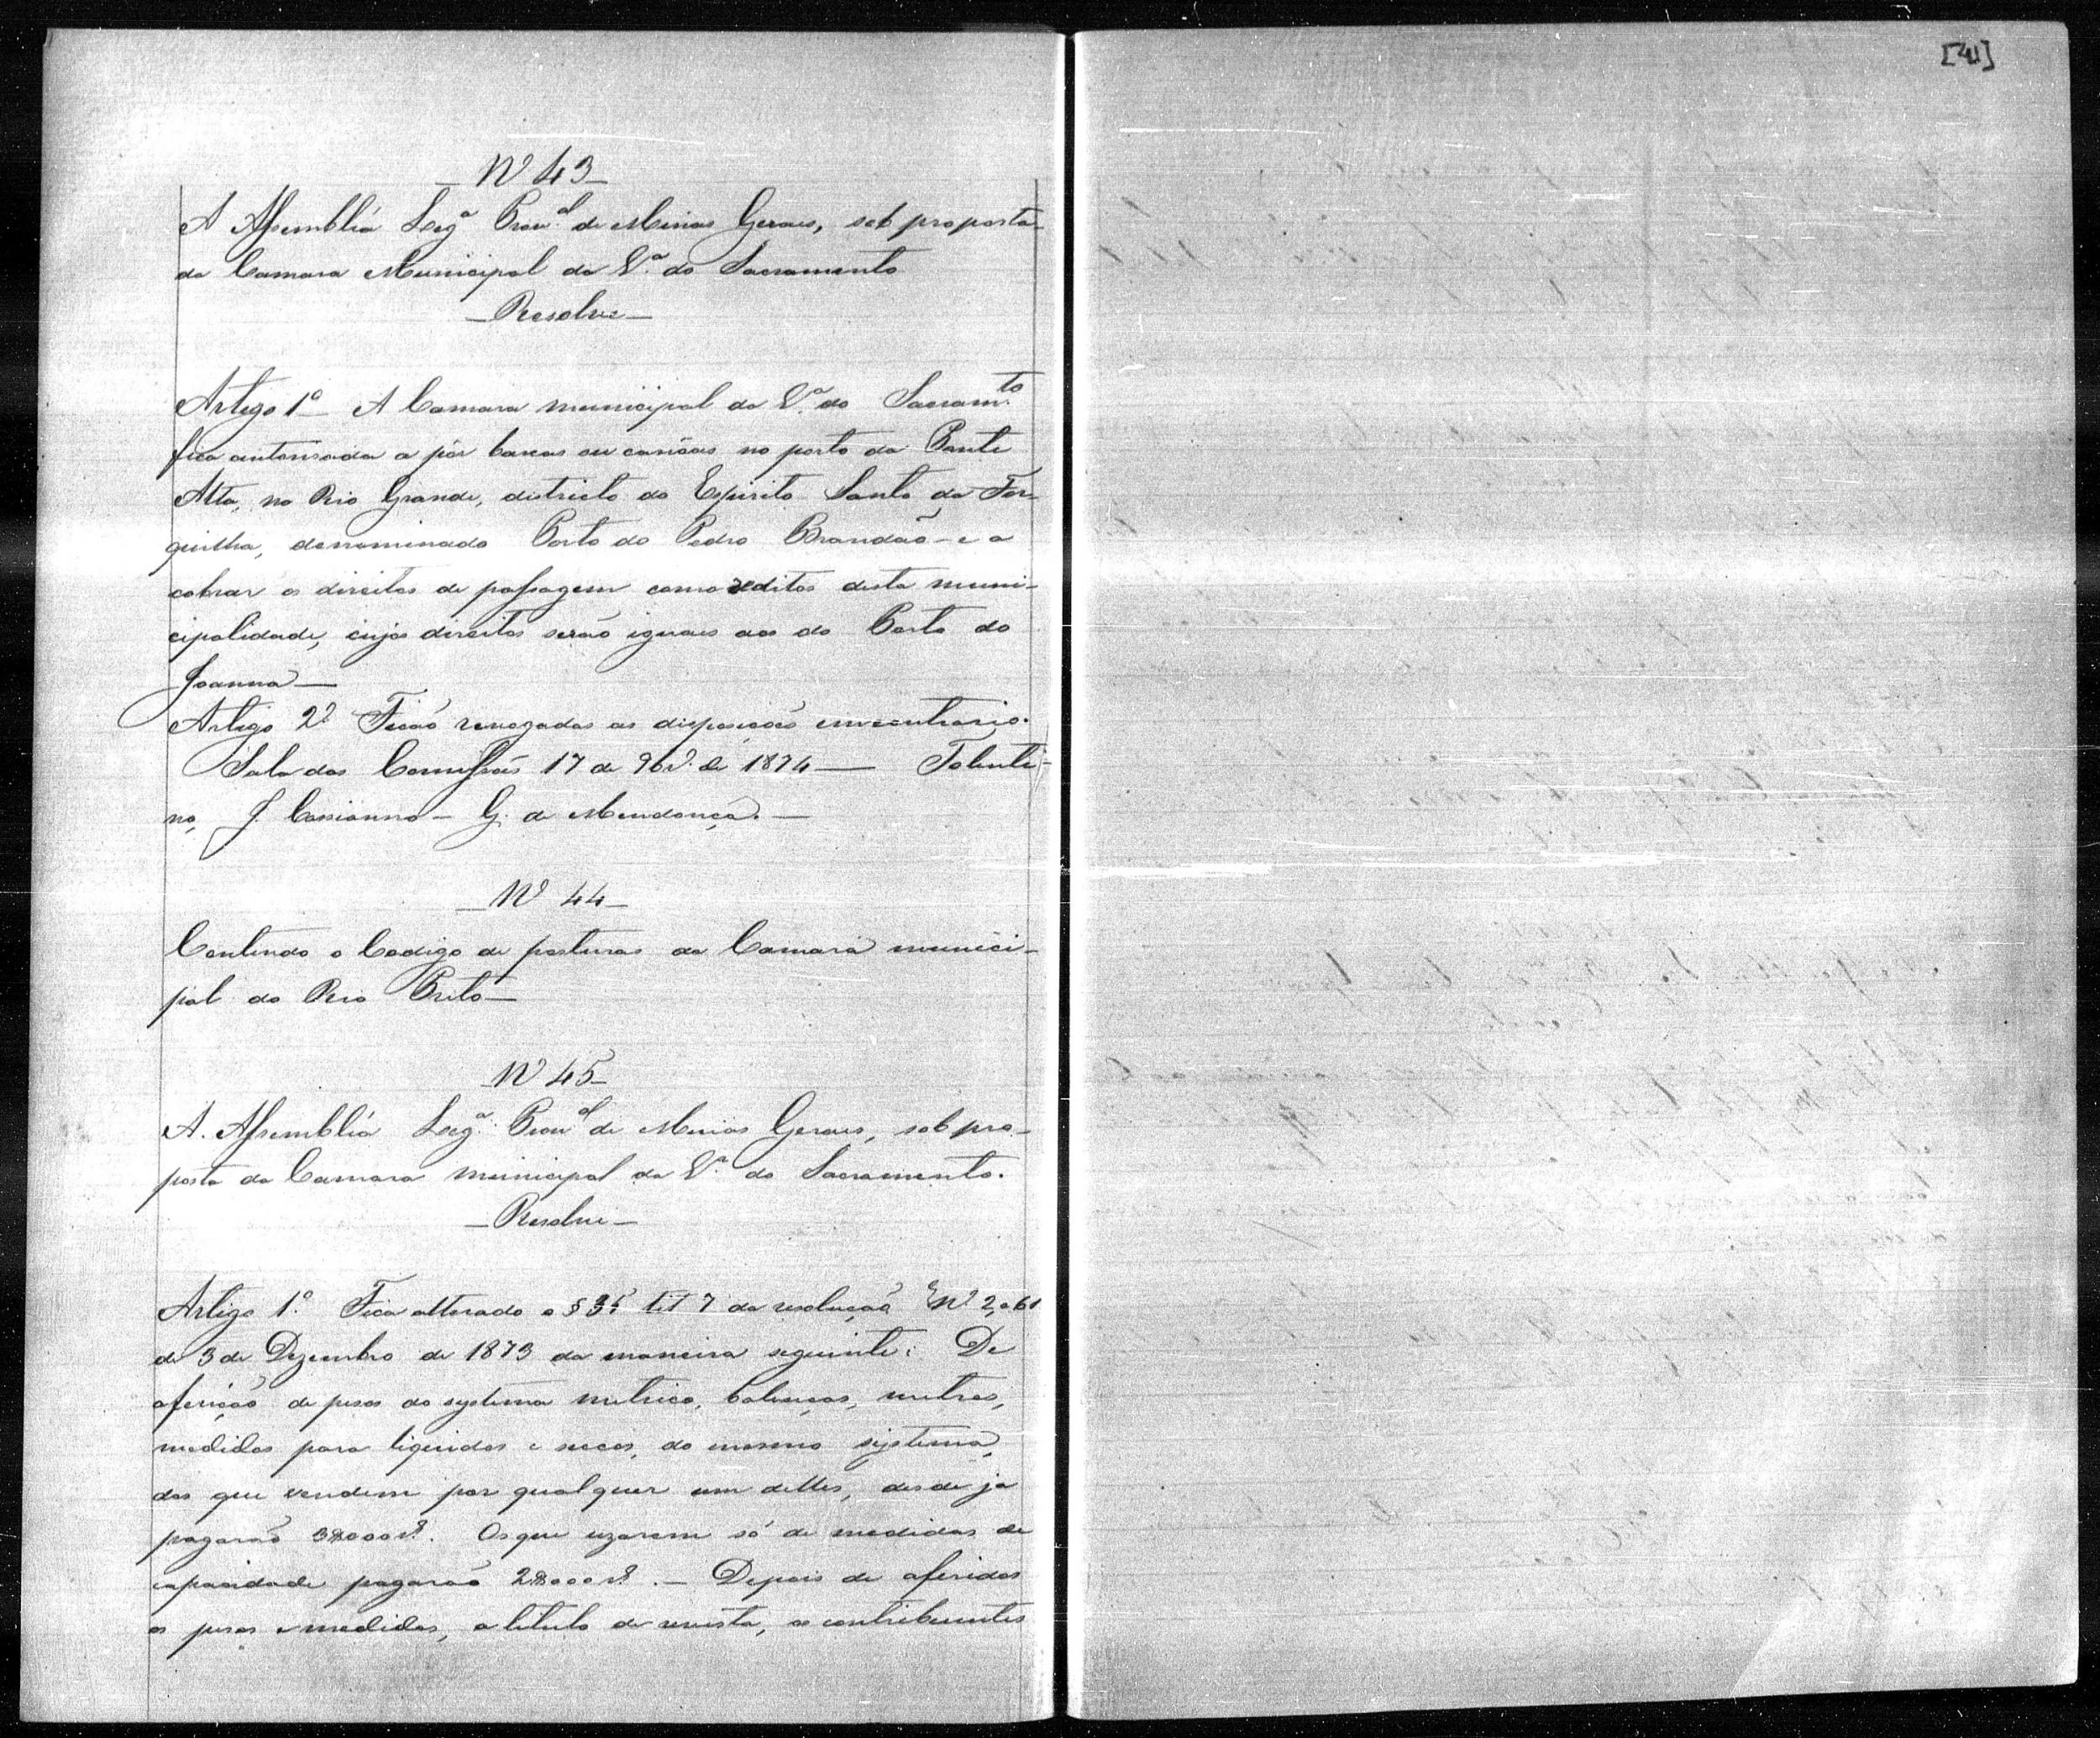 [41]
— Nº 43 —
A Assembléa Legª Provᵃˡ de Minas Geraes, sob proposta
da Camara Municipal da Vª do Sacramento
— Resolve —
Artigo 1º — A Camara municipal da Vª do Sacramᵗᵒ
fica autorisada a pôr barcas ou canôas no porto da Ponte
Alta, no Rio Grande, districto do Espirito Santo da For-
quilha, denominado Porto do Pedro Brandão — e a
cobrar os direitos de passagem como reditos desta muni-
cipalidade, cujos direitos serão iguaes aos do Porto do
Joanna —
Artigo 2º Ficão revogadas as disposições em contrario.
Sala das Comissões 17 de 9bʳº de 1874 — Tolenti-
no, J. Cassianno — G. de Mendonça. —
— Nº 44 —
Contendo o Codigo de posturas da Camara munici-
pal do Rio Preto —
— Nº 45 —
A. Assembléa Legª Provᵃˡ de Minas Geraes, sob pro-
posta da Camara municipal da Vª do Sacramento.
— Resolve —
Artigo 1º Fica alterado o § 35 tit 7 da resolução Nº 2,061
de 3 de Dezembro de 1873 da maneira seguinte: De
aferição de pesos do systema metrico, balanças, metros,
medidas para liquidos e seccos, do mesmo systema,
dos que vendem por qualquer um delles, desde já
pagarão 3$000 rs. Os que uzarem só de medidas de
capacidade pagarão 2$000 rs. — Depois de aferidos
os pesos e medidas, a titulo de revista, os contribuintes